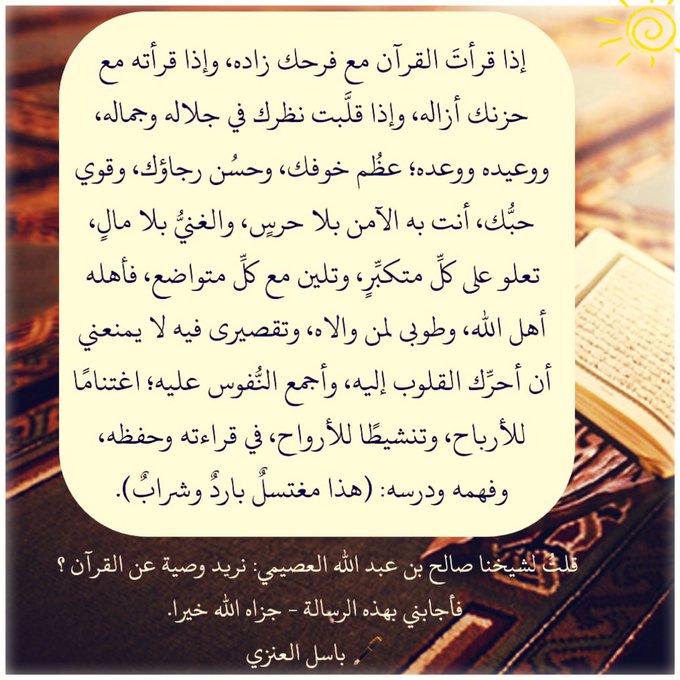 إذا قرأتَ القرآن مع فرحك زاده، وإذا قرأته مع
حزنك أزاله، وإذا قلَّبت نظرك في جلاله وجماله،
ووعيده ووعده؛ عظُم خوفك، وحسُن رجاؤك، وقوي
حبُّك، أنت به الآمن بلا حرسٍ، والغنيُّ بلا مالٍ،
تعلو على كلِّ متكبِّرٍ، وتلين مع كلِّ متواضع، فأهله
أهل الله، وطوبى لمن والاه، وتقصيرى فيه لا يمنعني
أن أحرِّك القلوب إليه، وأجمع النُّفوس عليه؛ اغتنامًا
للأرباح، وتنشيطًا للأرواح، في قراءته وحفظه،
وفهمه ودرسه: (هذا مغتسلٌ باردٌ وشرابٌ).
قلتُ لشيخنا صالح بن عبد الله العصيمي: نريد وصية عن القرآن ؟
فأجابني بهذه الرسالة - جزاه الله خيرا.
باسل العنزي